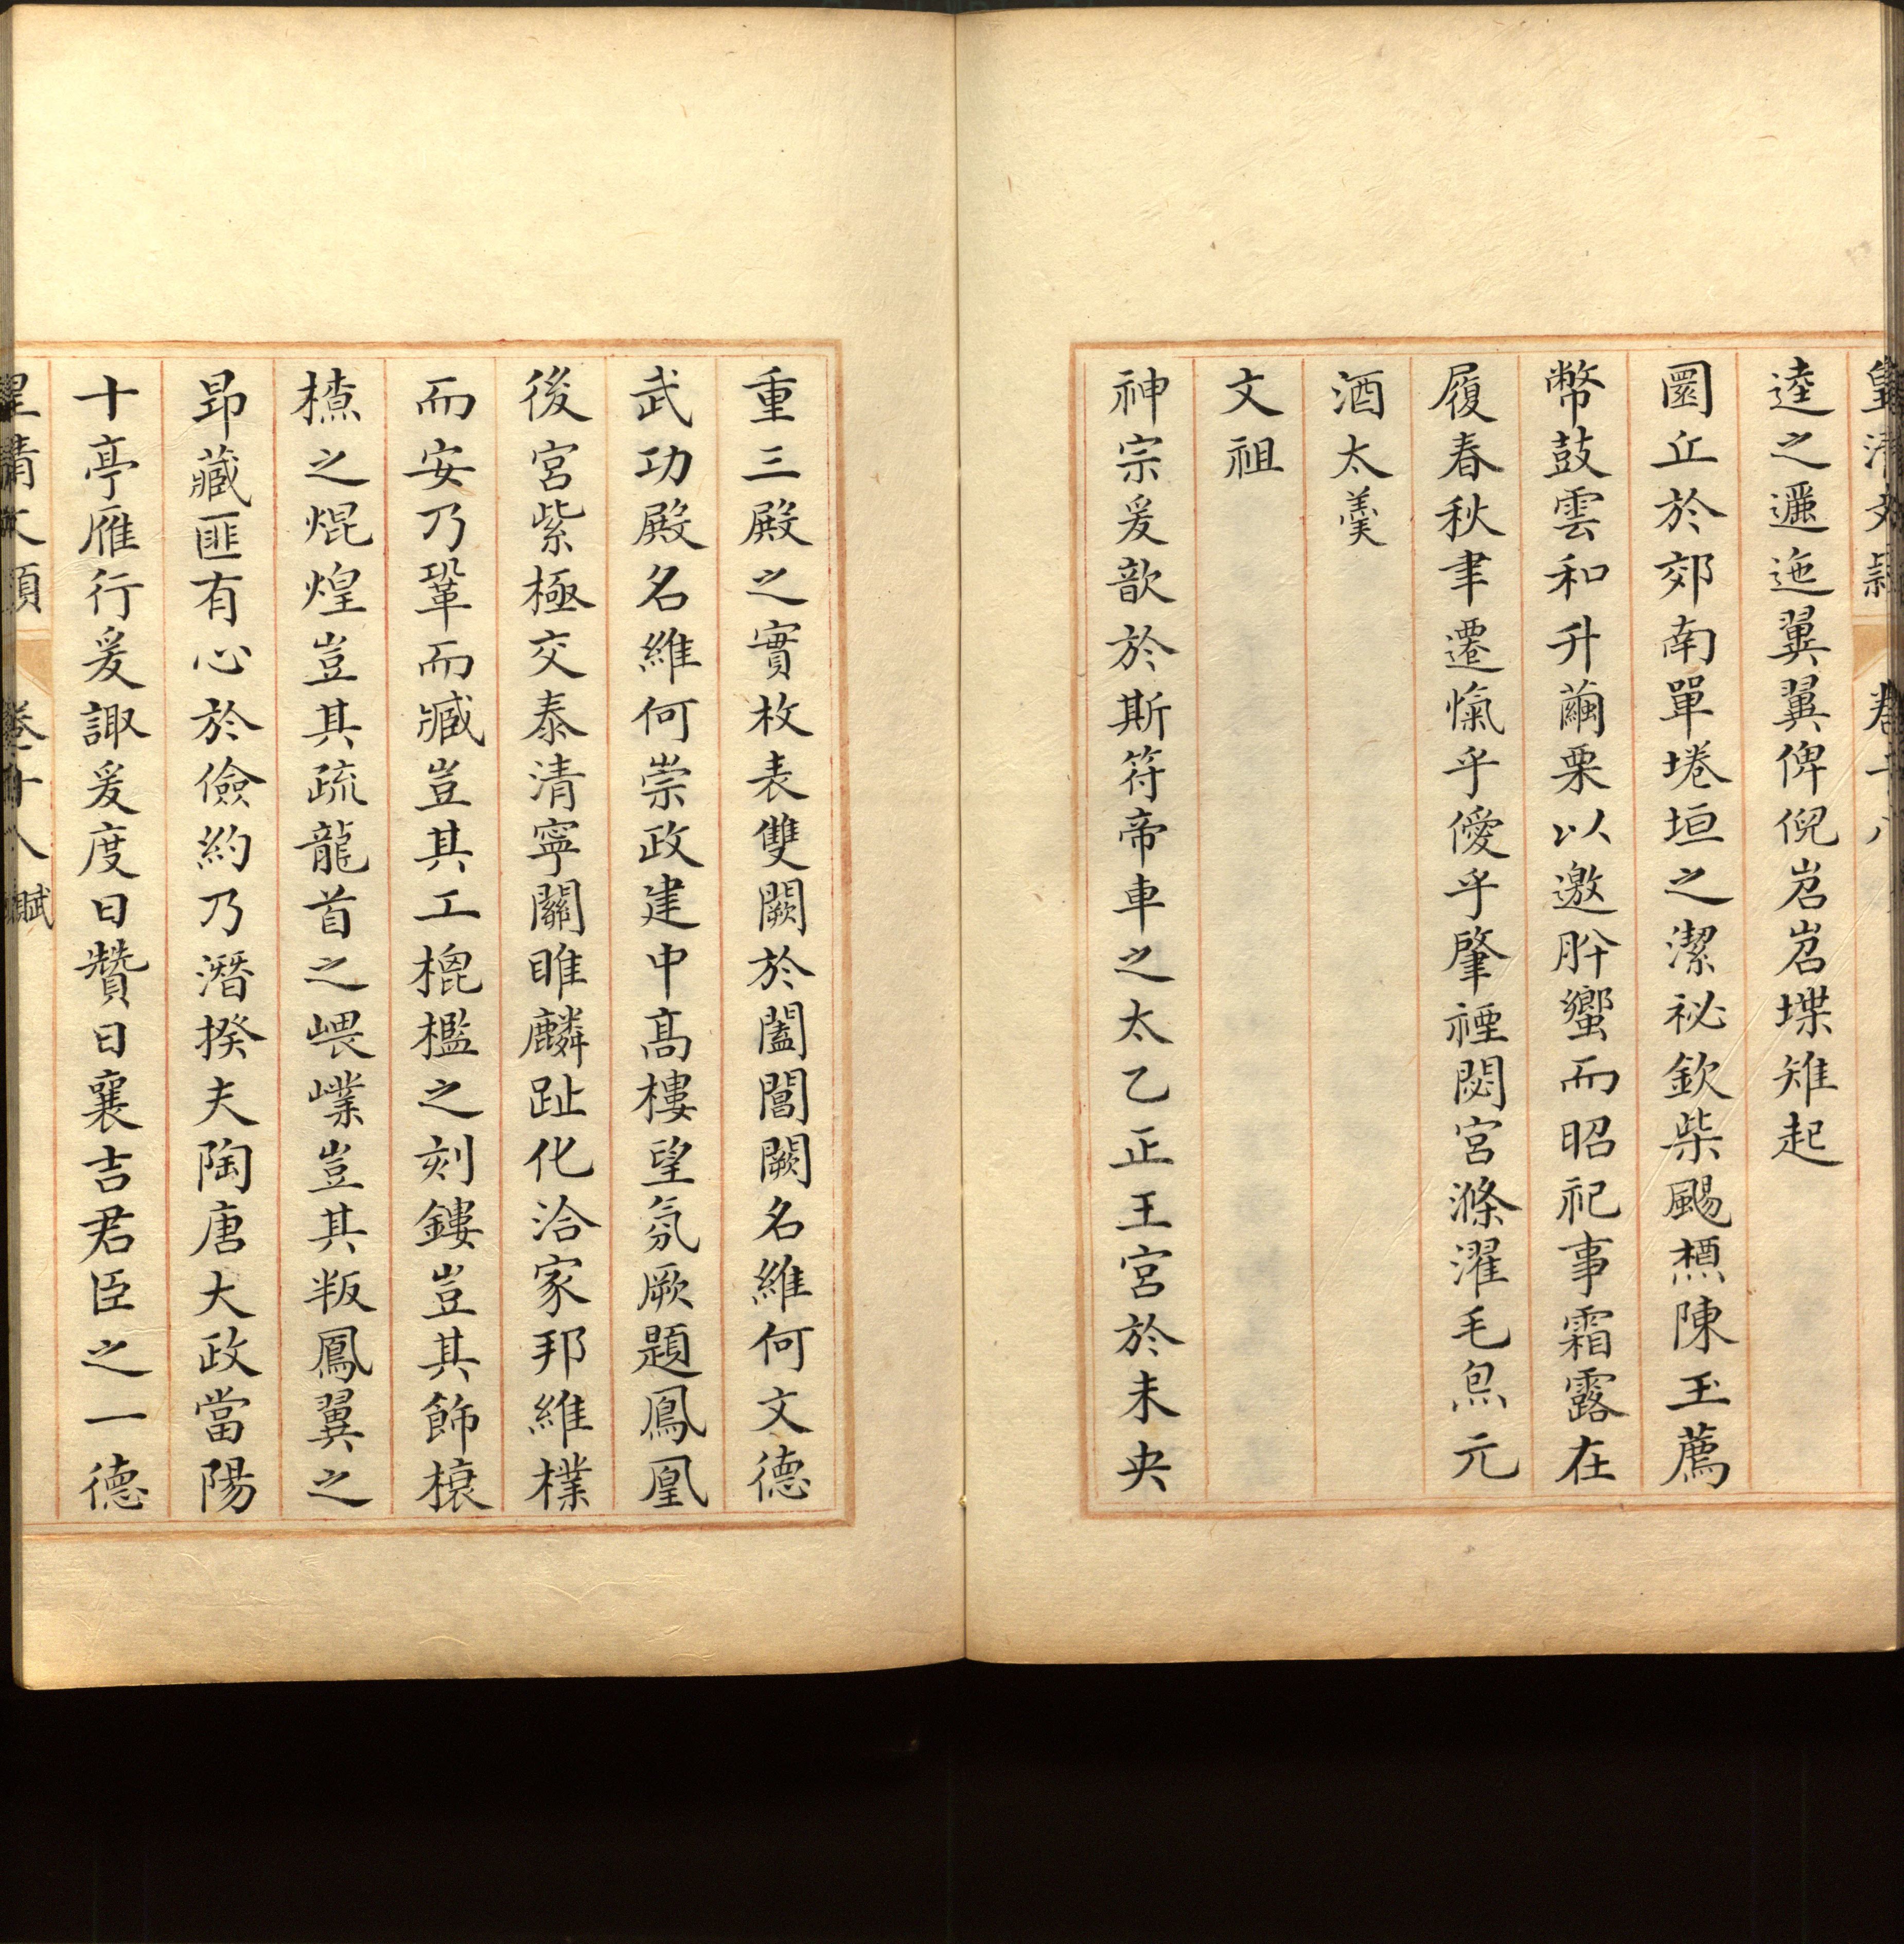 皇清文穎 卷十八
逵之邐迤翼翼俾倪岧岧堞雉起
圜丘於郊南單埢垣之潔祕欽柴颺槱陳玉薦
幣鼓雲和升繭栗以邀肸蠁而昭祀事霜露在
履春秋聿遷愾乎僾乎肇禋閟宮滌濯毛炰元
酒太羹
文祖
神宗爰歆於斯符帝車之太乙正王宮於未央
重三殿之實枚表雙闕於闔閶闕名維何文德
武功殿名維何崇政建中高樓望氛厥題鳳凰
後宮紫極交泰清寧關雎麟趾化洽家邦維樸
而安乃鞏而臧豈其工櫋檻之刻鏤豈其飾榱
榡之焜煌豈其疏龍首之㟪嶪豈其叛鳳翼之
昂藏匪有心於儉約乃潛揆夫陶唐大政當陽
十亭雁行爰諏爰度曰贊曰襄吉君臣之一德
皇清文穎 卷十八 賦